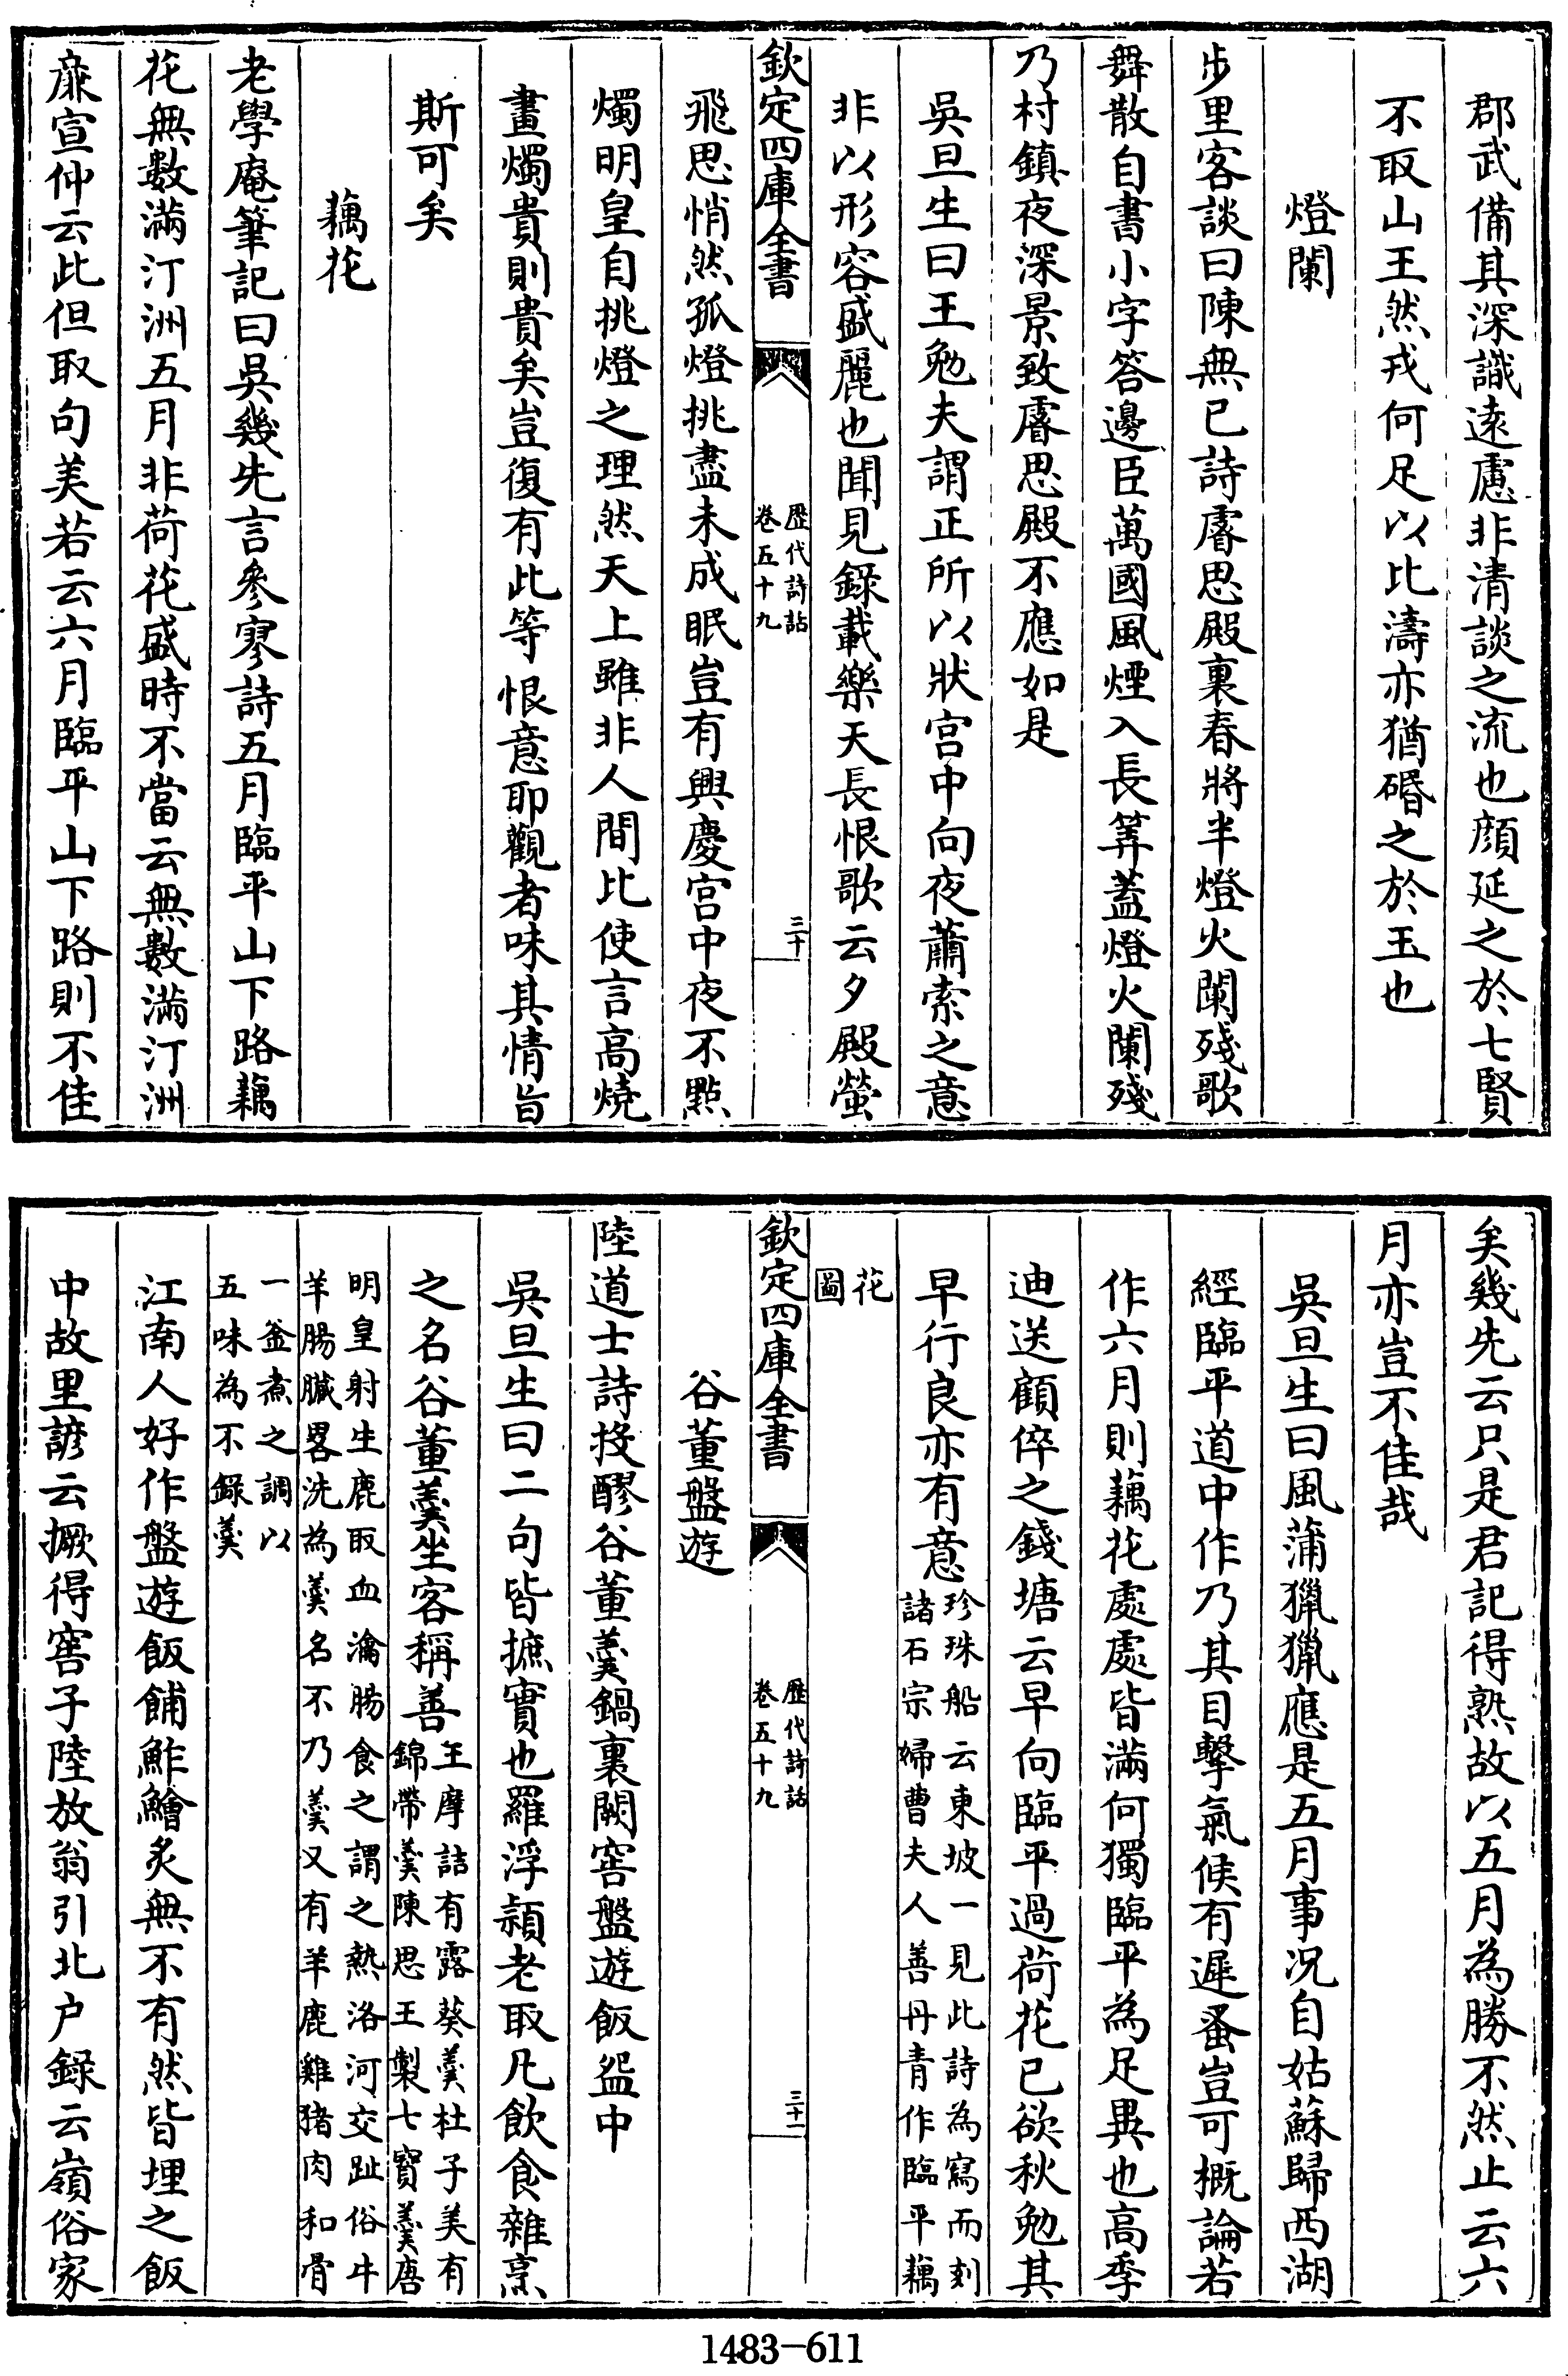 郡武備其深識遠慮非清談之流也顔延之於七賢
不取山王然戎何足以比濤亦猶碈之於玉也
燈闌
步里客談曰陳無已詩睿思殿裏春將半燈火闌殘歌
舞散自書小字答邊臣萬國風煙入長筭蓋燈火闌殘
乃村鎮夜深景致睿思殿不應如是
吳旦生曰王勉夫謂正所以狀宮中向夜蕭索之意
非以形容盛麗也聞見錄載樂天長恨歌云夕殿螢
欽定四庫全書
歷代詩話
卷五十九
三十
飛思悄然孤燈挑盡未成眠豈有興慶宮中夜不點
燭明皇自挑燈之理然天上雖非人間比使言高燒
畫燭貴則貴矣豈復有此等恨意耶觀者味其情旨
斯可矣
藕花
老學庵筆記曰吳幾先言參寥詩五月臨平山下路藕
花無數滿汀洲五月非荷花盛時不當云無數滿汀洲
廉宣仲云此但取句美若云六月臨平山下路則不佳
矣幾先云只是君記得熟故以五月為勝不然止云六
月亦豈不佳哉
吳旦生曰風蒲獵獵應是五月事況自姑蘇歸西湖
經臨平道中作乃其目擊氣候有遲蚤豈可概論若
作六月則藕花處處皆滿何獨臨平為足異也高季
迪送顧倅之錢塘云早向臨平過荷花已欲秋勉其
早行良亦有意
珍珠船云東坡一見此詩為寫而刻
諸石宗婦曹夫人善丹青作臨平藕
花
圖
欽定四庫全書
歷代詩話
卷五十九
三十一
谷董盤遊
陸道士詩投醪谷董羹鍋裏闕窖盤遊飯盌中
吳旦生曰二句皆摭實也羅浮頴老取凡飲食雜烹
之名谷董羹坐客稱善
王摩詰有露葵羹杜子美有
錦帶羹陳思王製七寶羹唐
明皇射生鹿取血瀹腸食之謂之熱洛河交趾俗牛
羊腸臟畧洗為羹名不乃羹又有羊鹿雞猪肉和骨
一釜煮之調以
五味為不錄羹
江南人好作盤遊飯鯆鮓鱠炙無不有然皆埋之飯
中故里諺云撅得窖子陸放翁引北户録云嶺俗家
1483-611